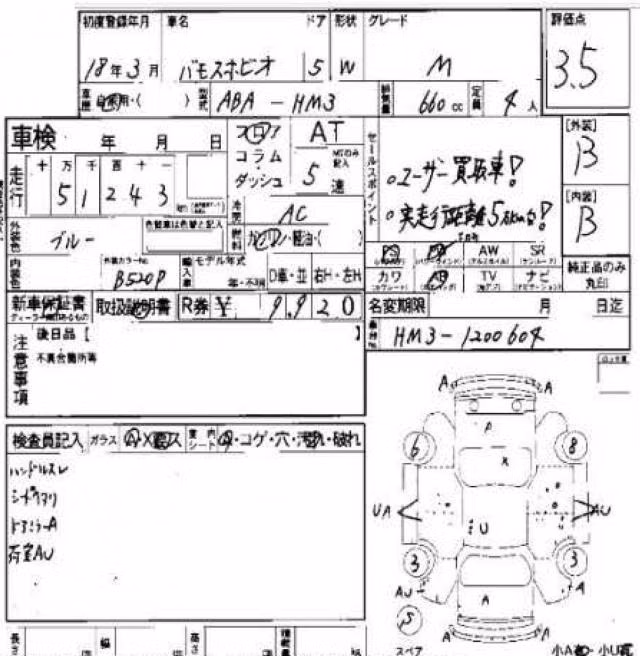 初度登録年月 車名 ドア 形状 グレード 評価点
18年3月 バモスホビオ 5 W M 3.5
車歴 自家用・( ) 型式 ABA-HM3 排気量 660cc 定員 4人
車検 年 月 日 フロア AT
コラム MTのみ記入
ダッシュ 5 速
走行 十 万 千 百 十 一
5 1 2 4 3 km
セールスポイント
○ユーザー買取車!
○実走行距離5.1km台!
[外装]
B
[内装]
B
冷房 AC
外装色 ブルー 色替車は色替と記入 燃料 ガソリン・軽油・( )
内装色 外装カラーNo. B520P 輸入車 モデル年式 年・不明 D車・並 右H・左H
PS PW AW SR
カワ AB TV ナビ
純正品のみ丸印
新車保証書 取扱説明書 R券 ¥ 9,920 名変期限 月 日迄
車台No. HM3-1200604
注意事項 後日品【 】
不具合箇所等
検査員記入 ガラス A・X・ 室内 シート ・コゲ・穴・汚れ・破れ
ハンドルスレ
荷室AU
A A
A
6 8
X
UA U AU
3 3
AU A A
5
A A
スペア
長さ 幅 高さ 積載量